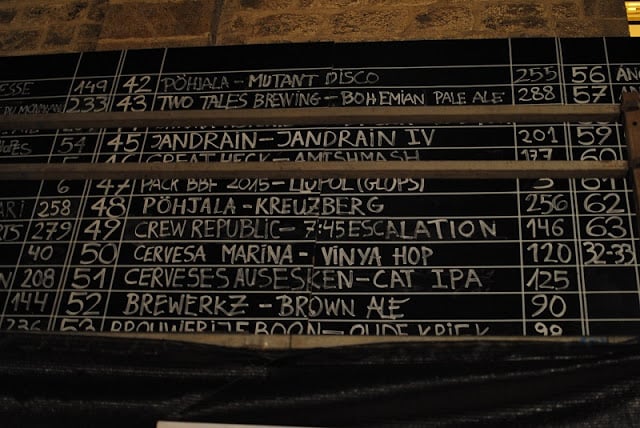 ESSE 149 42 PÕHJALA - MUTANT DISCO 255 56
233 43 TWO TALES BREWING - BOHEMIAN PALE ALE 288 57
54 45 JANDRAIN - JANDRAIN IV 201 59
46 GREAT HECK - AMISHMASH 177 60
6 47 PACK BBF 2015 - LLUPOL (GLOPS) 5 61
258 48 PÕHJALA - KREUZBERG 256 62
279 49 CREW REPUBLIC - 7:45 ESCALATION 146 63
40 50 CERVESA MARINA - VINYA HOP 120 32-33
208 51 CERVESES AUSESKEN - CAT IPA 125
144 52 BREWERKZ - BROWN ALE 90
236 53 BROUWERIJ BOON - OUDE KRIEK 98